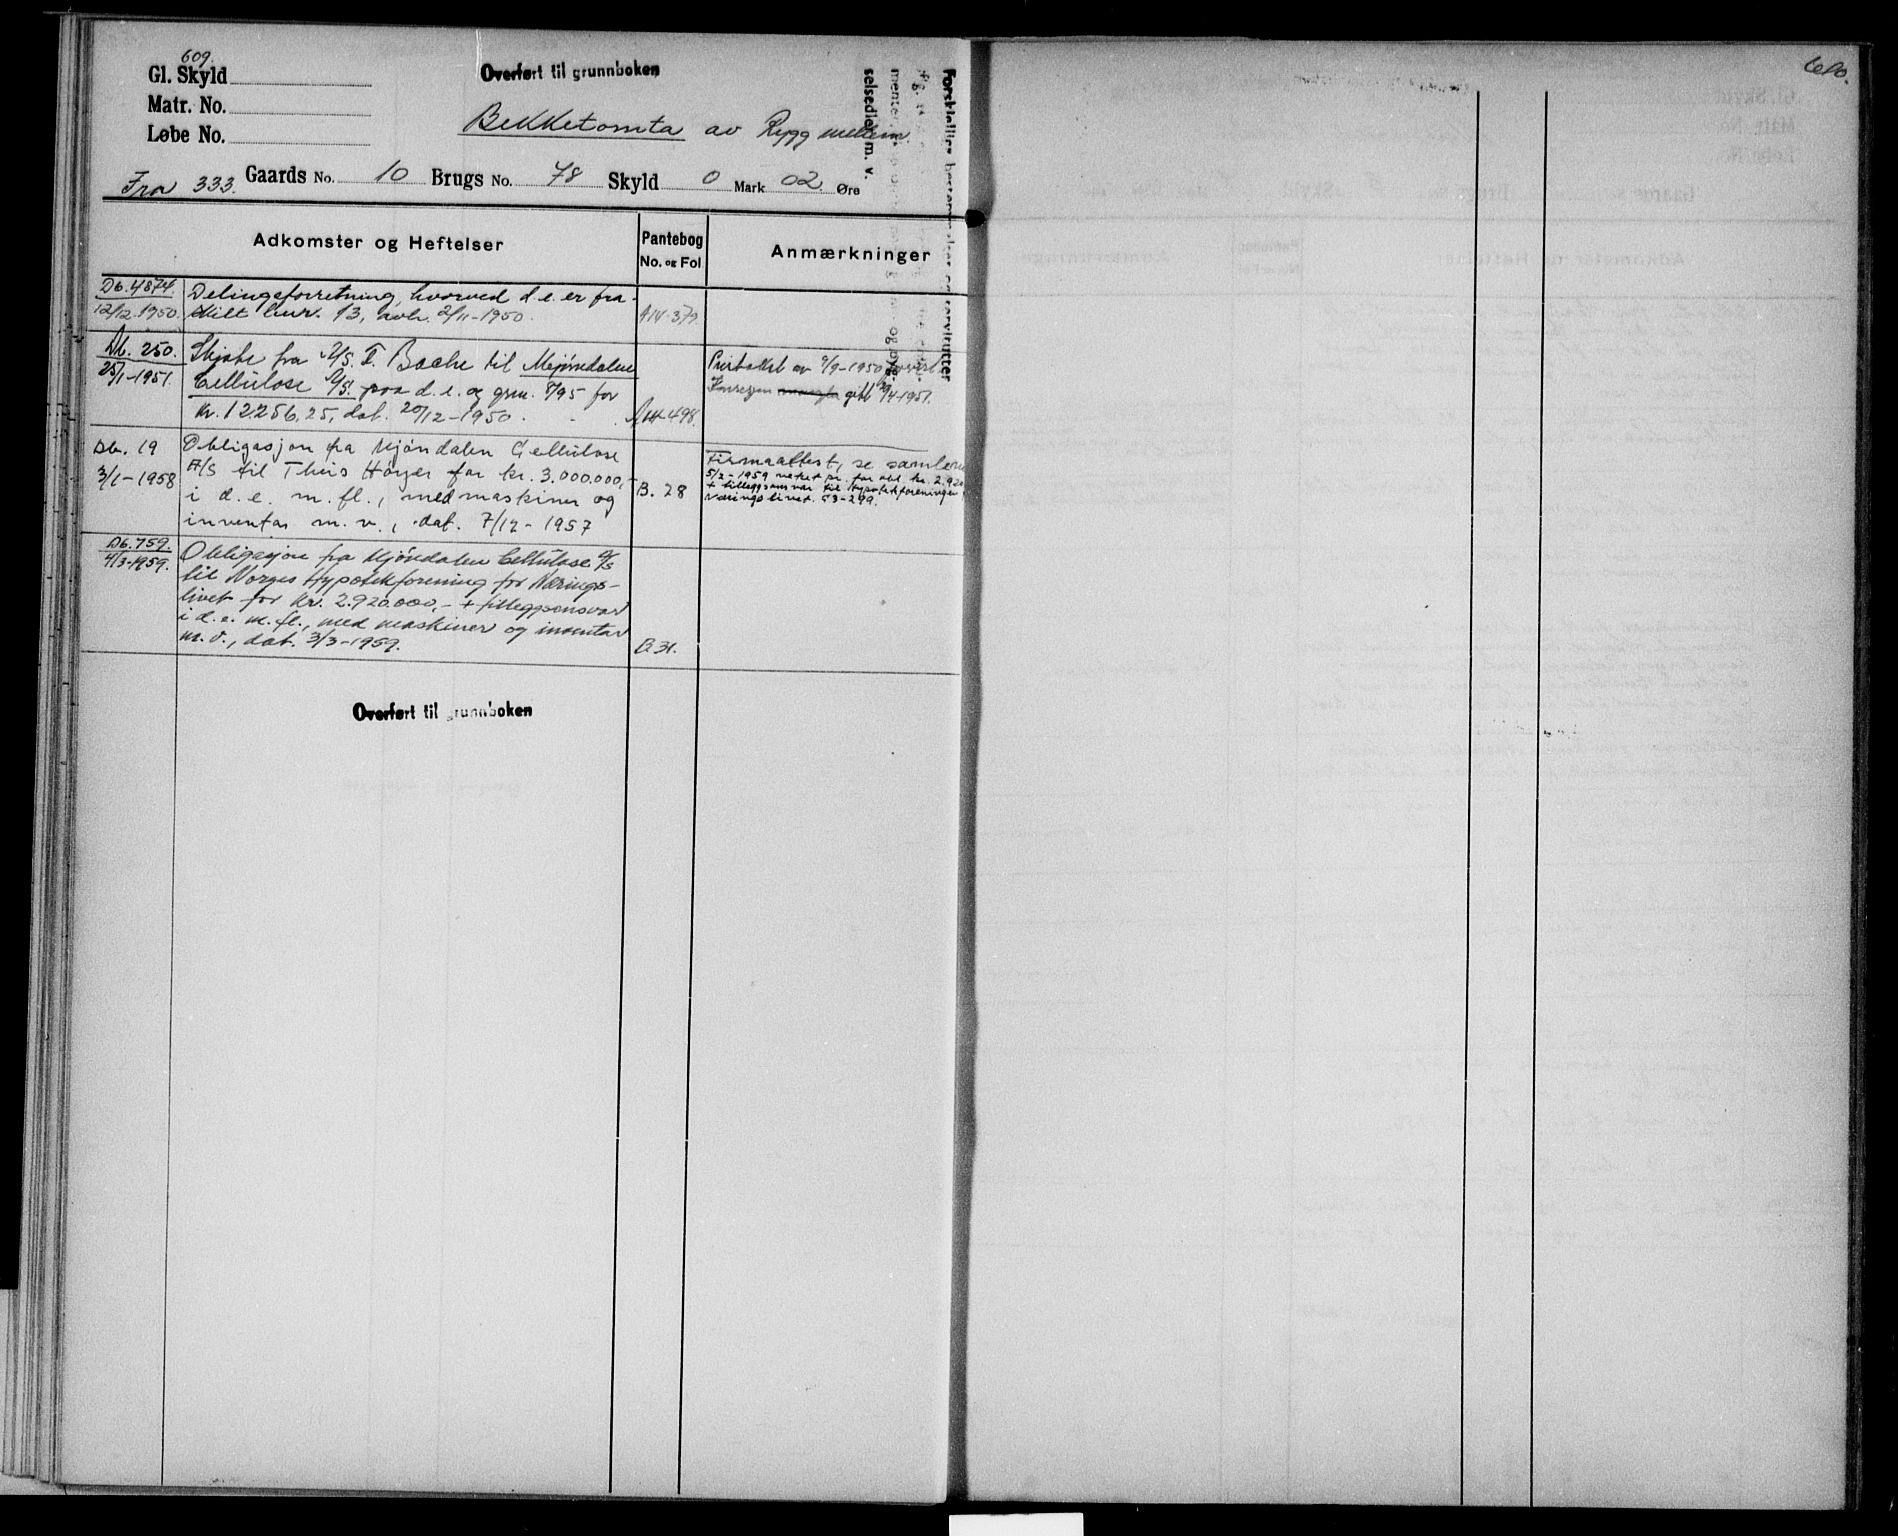 609.
Gl. Skyld
Matr. No.
Løbe No.
Overført til grunnboken
Bekketomta av Rygg mellem
Fra 333. Gaards No. 10 Brugs No. 78 Skyld 0 Mark 02 Øre
Adkomster og Heftelser
Pantebog
No. og Fol
Anmærkninger
selsedler m. v.
Db. 4874.
12/12 1950.
Delingsforretning, hvorved d. e. er fra-
skilt bnr. 13, avh. 2/11-1950.
A14-379
Db. 250.
25/1-1951.
Skjøte fra A/S I. Bache til Mjøndalen
Cellulose A/S. paa d. e. og gnr. 8/95 for
kr. 12.256,25, dat. 20/12-1950.
A14-498.
av 9/9-1950
gitt 4-1951.
Db. 19
3/1-1958
Obligasjon fra Mjöndalen Cellulose
A/S til Thiis Höyer for kr. 3.000.000,-
i d. e. m. fl., med maskiner og
inventar m. v., dat. 7/12-1957
B. 28
Firmaattest, se samlereg
5/2-1959 veket pr. for obl. kr. 2.920
+ tilleggsansvar til Hypotekforeningen f
Næringslivet. C3-299.
Db. 759.
4/3-1959.
Obligasjon fra Mjöndalen Cellulose A/S
til Norges Hypotekforening for Nærings-
livet for kr. 2.920.000,- + tilleggsansvar
i d. e. m. fl., med maskiner og inventar
m. v., dat. 3/3-1959.
B 31.
Overført til grunnboken
610.